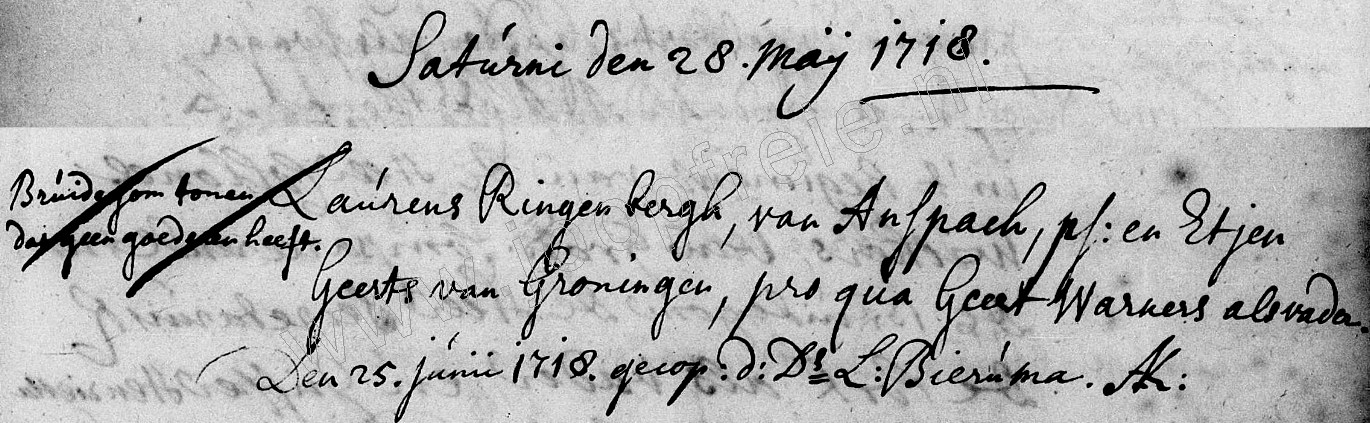 Satúrni den 28. Maÿ 1718.
Brúidegom tonen
dat geen goederen heeft.
Laúrens Ringenbergh, van Anspach, ps: en Etjen
Geerts van Groningen, pro qúa Geert Warners als vader
Den 25. júnii 1718. gecop: d: Ds L: Bierúma. AK:
www.jaapfreie.nl